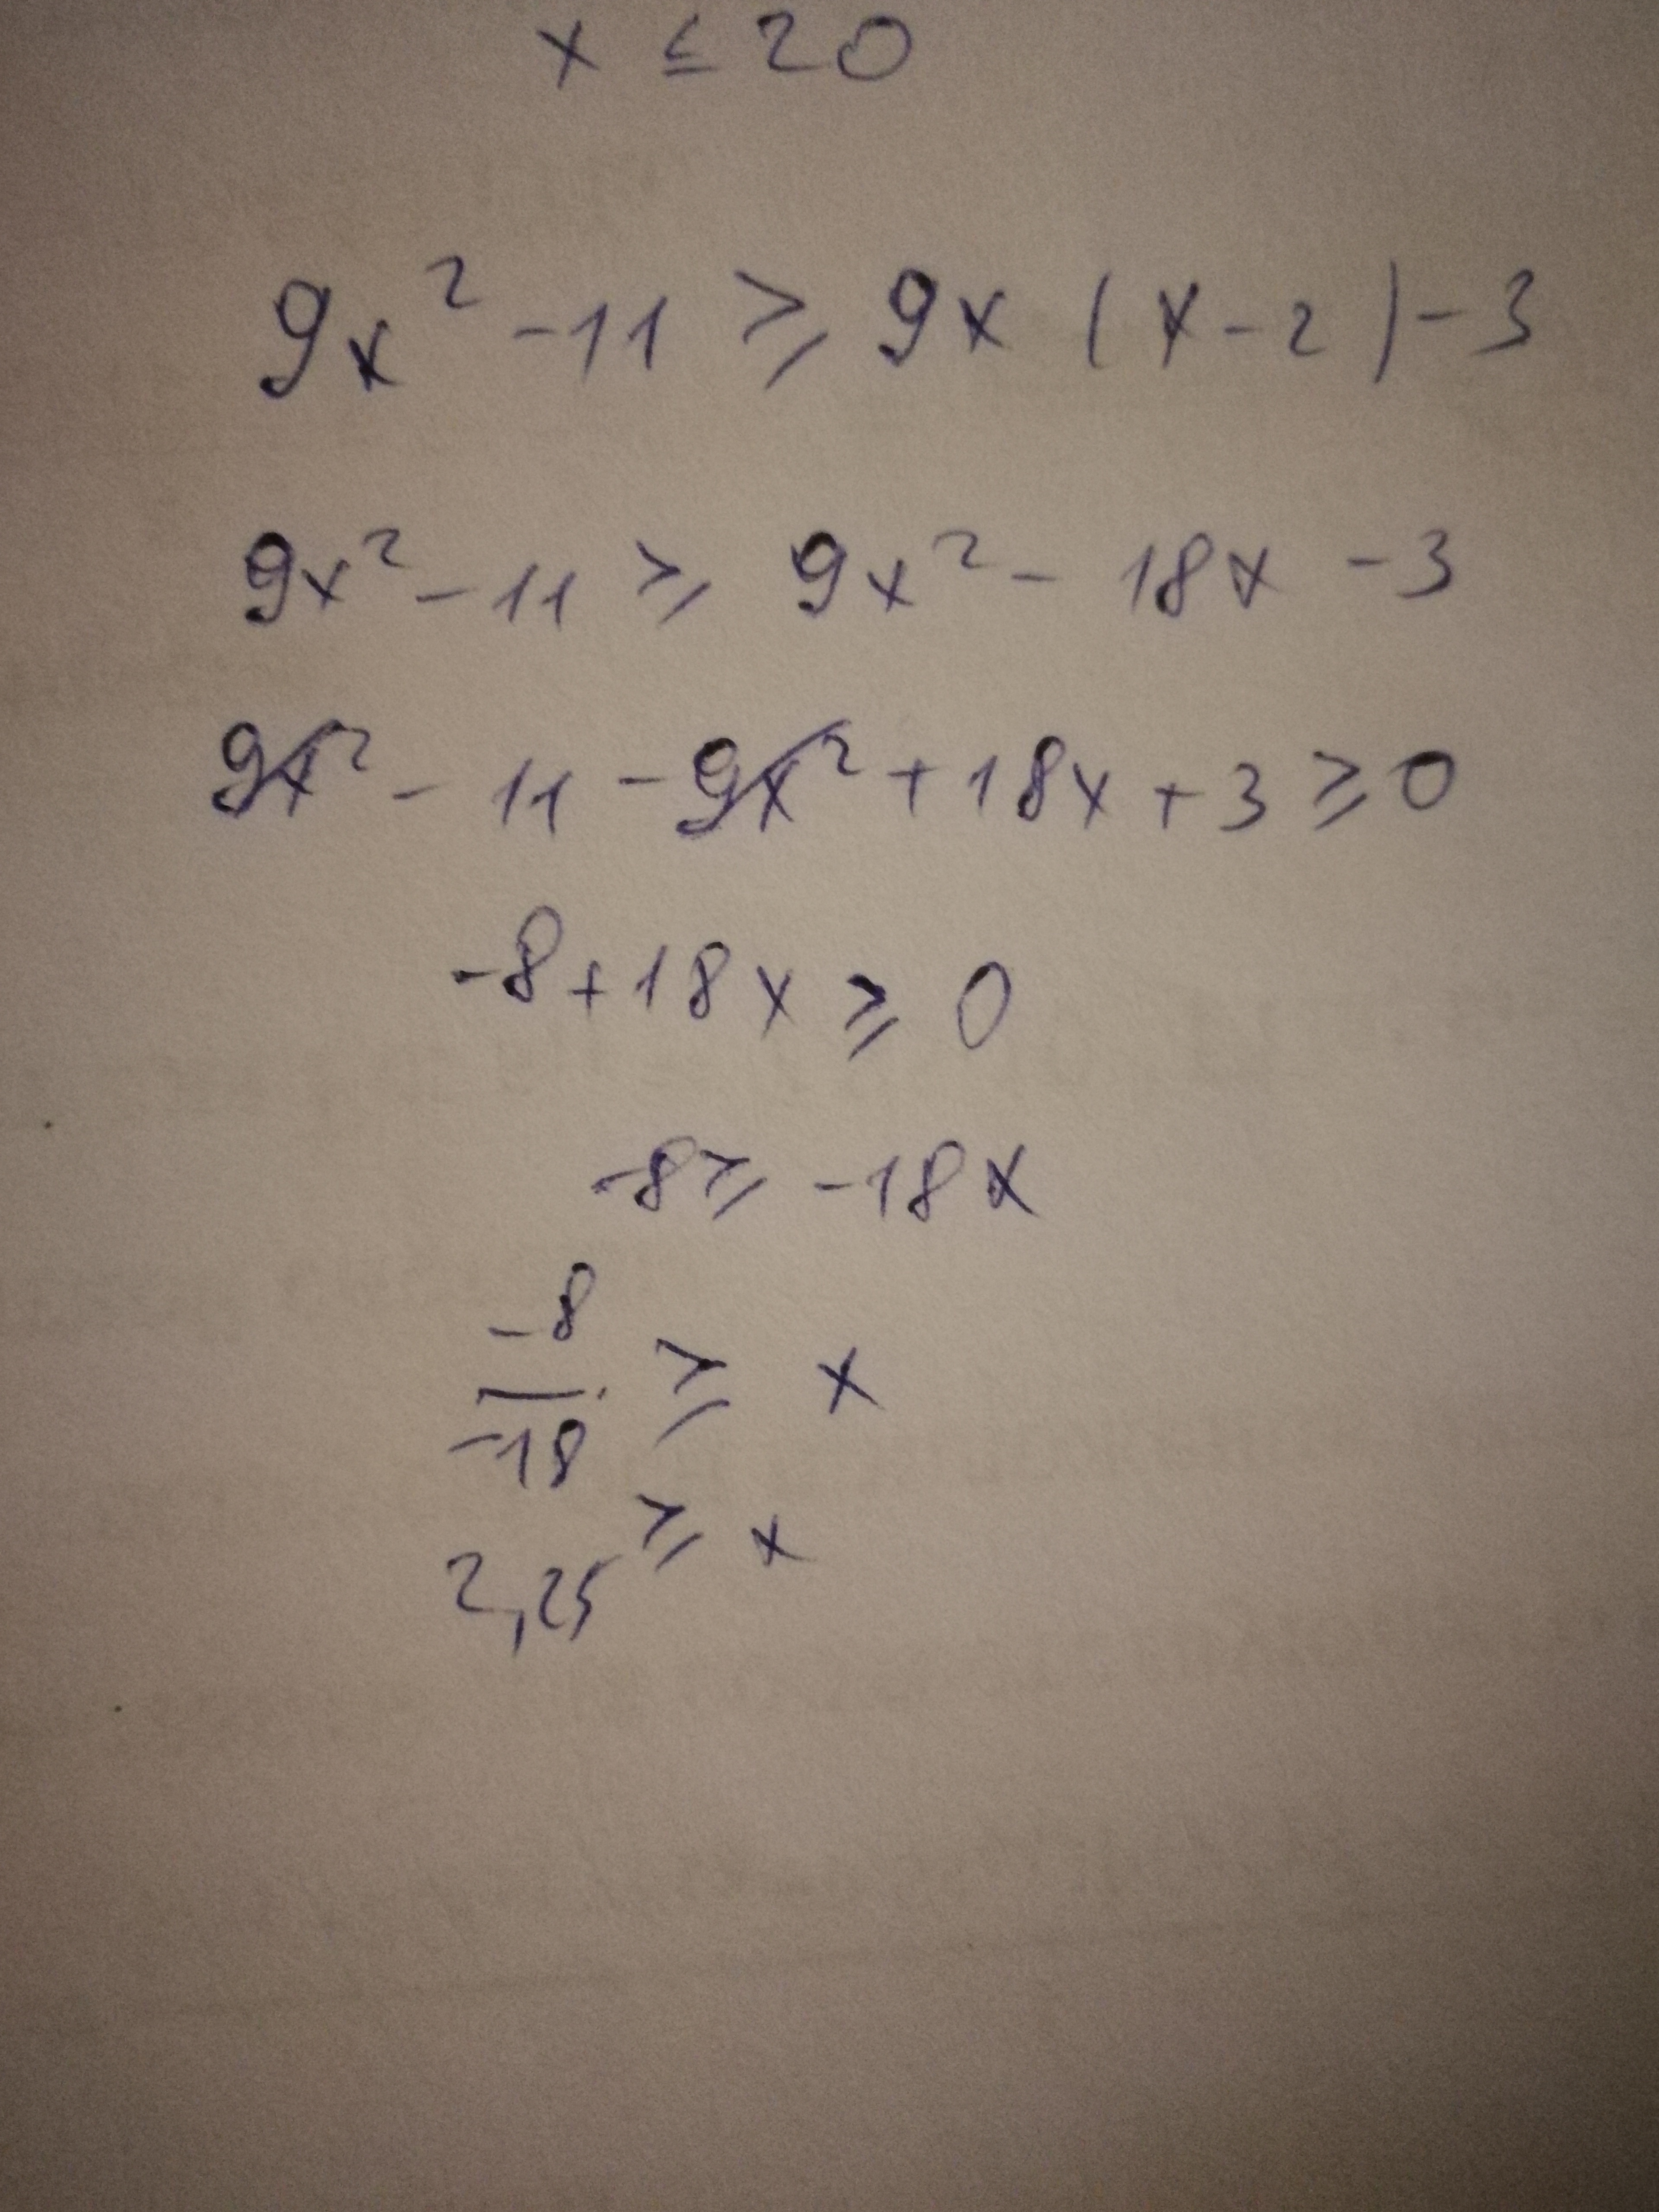 x ≤ 20
9x² - 11 ≥ 9x (x - 2) - 3
9x² - 11 ≥ 9x² - 18x - 3
9x² - 11 - 9x² + 18x + 3 ≥ 0
-8 + 18x ≥ 0
-8 ≥ -18x
-8/-18 ≥ x
2,25 ≥ x